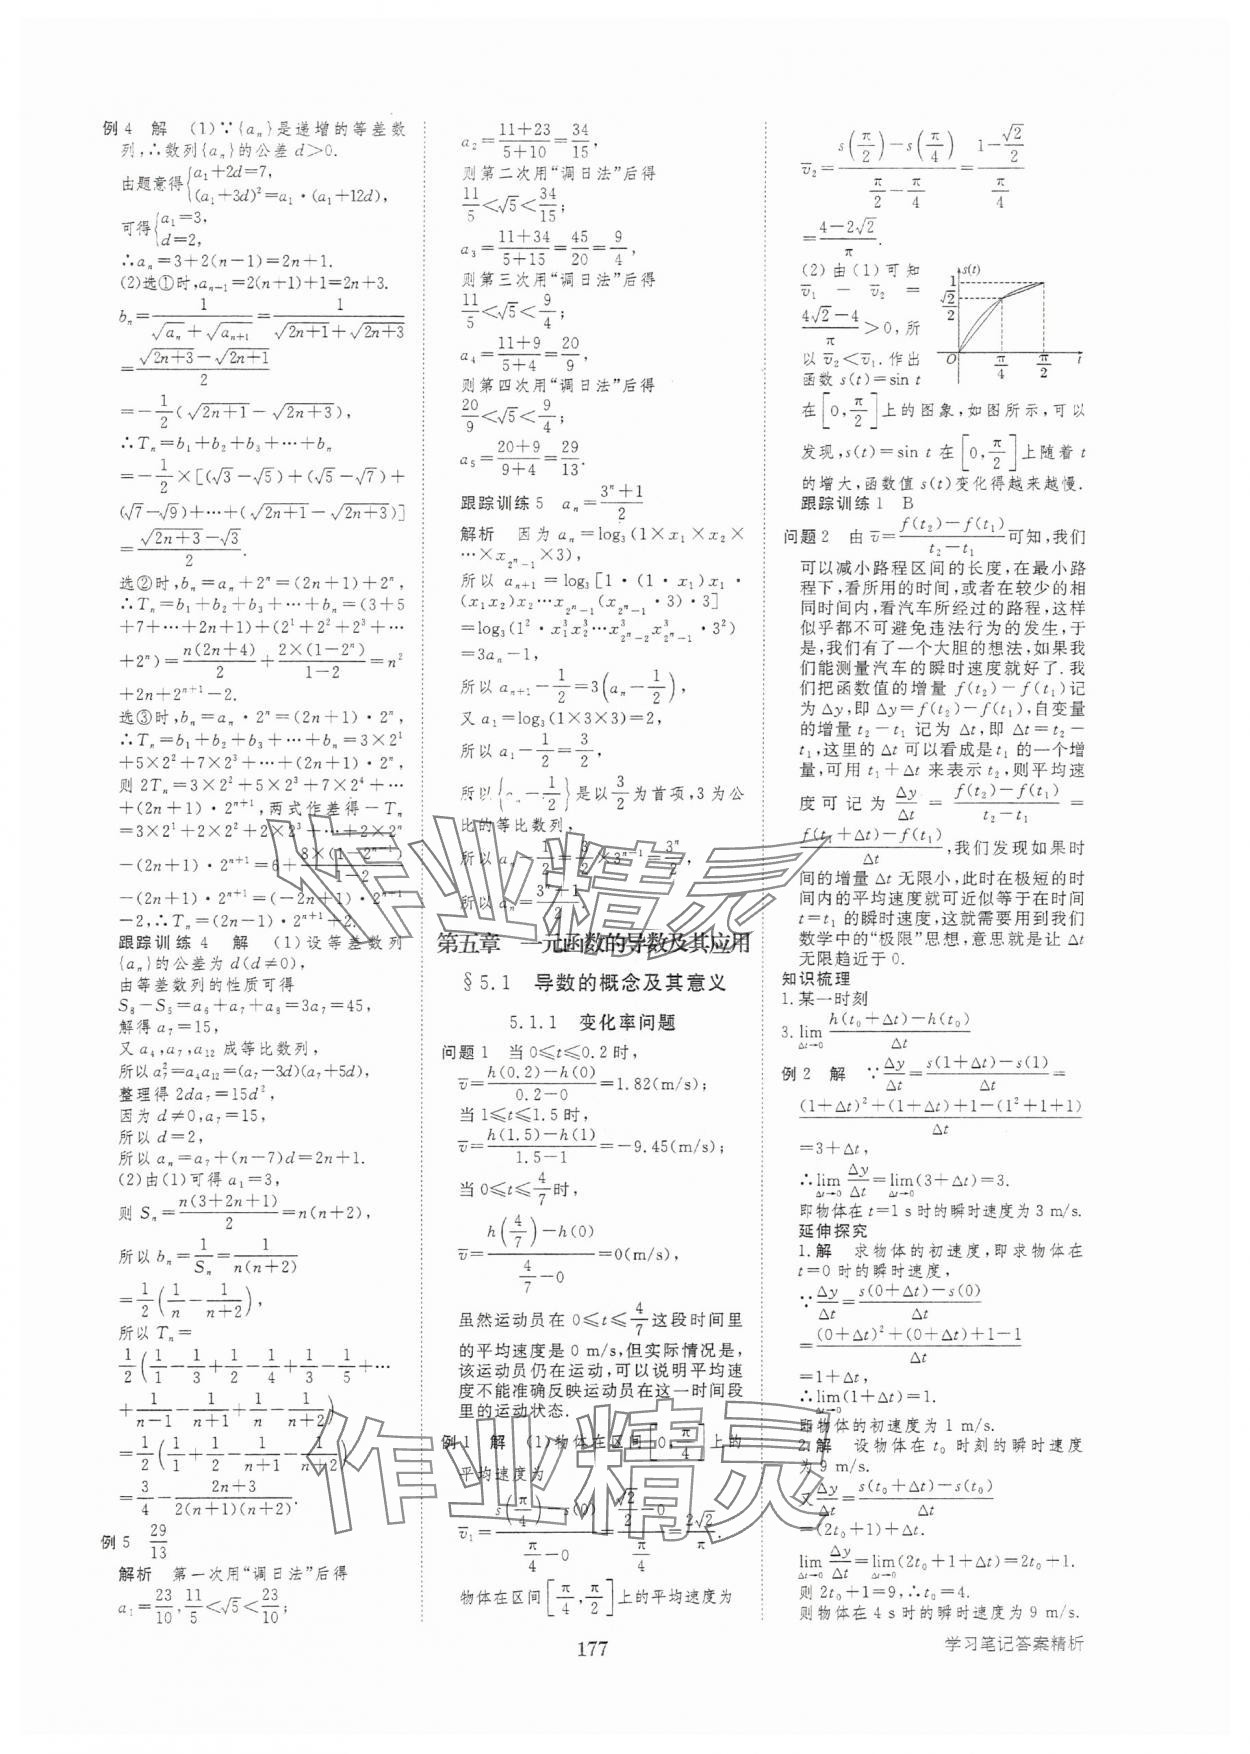 例4 解 (1)∵{aₙ}是递增的等差数
列,∴数列{aₙ}的公差 d>0.
由题意得{a₁+2d=7, (a₁+3d)²=a₁·(a₁+12d),
可得{a₁=3, d=2,
∴aₙ=3+2(n-1)=2n+1.
(2)选①时,aₙ₋₁=2(n+1)+1=2n+3.
bₙ=1/(√aₙ+√aₙ₊₁)=1/(√(2n+1)+√(2n+3))
=(√(2n+3)-√(2n+1))/2
=-1/2(√(2n+1)-√(2n+3)),
∴Tₙ=b₁+b₂+b₃+⋯+bₙ
=-1/2×[(√3-√5)+(√5-√7)+
(√7-√9)+⋯+(√(2n+1)-√(2n+3))]
=(√(2n+3)-√3)/2.
选②时,bₙ=aₙ+2ⁿ=(2n+1)+2ⁿ,
∴Tₙ=b₁+b₂+b₃+⋯+bₙ=(3+5
+7+⋯+2n+1)+(2¹+2²+2³+⋯
+2ⁿ)=n(2n+4)/2+2×(1-2ⁿ)/(1-2)=n²
+2n+2ⁿ⁺¹-2.
选③时,bₙ=aₙ·2ⁿ=(2n+1)·2ⁿ,
∴Tₙ=b₁+b₂+b₃+⋯+bₙ=3×2¹
+5×2²+7×2³+⋯+(2n+1)·2ⁿ,
则 2Tₙ=3×2²+5×2³+7×2⁴+⋯
+(2n+1)·2ⁿ⁺¹,两式作差得-Tₙ
=3×2¹+2×2²+2×2³+⋯+2×2ⁿ
-(2n+1)·2ⁿ⁺¹=6+8×(1-2ⁿ⁻¹)/(1-2)
-(2n+1)·2ⁿ⁺¹=(-2n+1)·2ⁿ⁺¹
-2,∴Tₙ=(2n-1)·2ⁿ⁺¹+2.
跟踪训练4 解 (1)设等差数列
{aₙ}的公差为 d(d≠0),
由等差数列的性质可得
S₈-S₅=a₆+a₇+a₈=3a₇=45,
解得 a₇=15,
又 a₄,a₇,a₁₂ 成等比数列,
所以 a₇²=a₄a₁₂=(a₇-3d)(a₇+5d),
整理得 2da₇=15d²,
因为 d≠0,a₇=15,
所以 d=2,
所以 aₙ=a₇+(n-7)d=2n+1.
(2)由(1)可得 a₁=3,
则 Sₙ=n(3+2n+1)/2=n(n+2),
所以 bₙ=1/Sₙ=1/(n(n+2))
=1/2(1/n-1/(n+2)),
所以 Tₙ=
1/2(1/1-1/3+1/2-1/4+1/3-1/5+⋯
+1/(n-1)-1/(n+1)+1/n-1/(n+2))
=1/2(1/1+1/2-1/(n+1)-1/(n+2))
=3/4-(2n+3)/(2(n+1)(n+2)).
例5 29/13
解析 第一次用“调日法”后得
a₁=23/10,11/5<√5<23/10;
a₂=(11+23)/(5+10)=34/15,
则第二次用“调日法”后得
11/5<√5<34/15;
a₃=(11+34)/(5+15)=45/20=9/4,
则第三次用“调日法”后得
11/5<√5<9/4;
a₄=(11+9)/(5+4)=20/9,
则第四次用“调日法”后得
20/9<√5<9/4;
a₅=(20+9)/(9+4)=29/13.
跟踪训练5 aₙ=(3ⁿ+1)/2
解析 因为 aₙ=log₃(1×x₁×x₂×
⋯×x_{2ⁿ-1}×3),
所以 aₙ₊₁=log₃[1·(1·x₁)x₁·
(x₁x₂)x₂⋯x_{2ⁿ-1}(x_{2ⁿ-1}·3)·3]
=log₃(1²·x₁³x₂³⋯x³_{2ⁿ-2}x³_{2ⁿ-1}·3²)
=3aₙ-1.
所以 aₙ₊₁-1/2=3(aₙ-1/2),
又 a₁=log₃(1×3×3)=2,
所以 a₁-1/2=3/2,
所以{aₙ-1/2}是以3/2为首项,3为公
比的等比数列,
所以 aₙ-1/2=3/2×3ⁿ⁻¹=3ⁿ/2,
所以 aₙ=(3ⁿ+1)/2.
第五章 一元函数的导数及其应用
§5.1 导数的概念及其意义
5.1.1 变化率问题
问题1 当 0≤t≤0.2 时,
v̄=(h(0.2)-h(0))/(0.2-0)=1.82(m/s);
当 1≤t≤1.5 时,
v̄=(h(1.5)-h(1))/(1.5-1)=-9.45(m/s);
当 0≤t≤4/7时,
v̄=(h(4/7)-h(0))/(4/7-0)=0(m/s),
虽然运动员在 0≤t≤4/7这段时间里
的平均速度是 0 m/s,但实际情况是,
该运动员仍在运动,可以说明平均速
度不能准确反映运动员在这一时间段
里的运动状态.
例1 解 (1)物体在区间[0,π/4]上的
平均速度为
v̄₁=(s(π/4)-s(0))/(π/4-0)=(√2/2-0)/(π/4)=2√2/π.
物体在区间[π/4,π/2]上的平均速度为
v̄₂=(s(π/2)-s(π/4))/(π/2-π/4)=(1-√2/2)/(π/4)
=(4-2√2)/π.
(2)由(1)可知
v̄₁-v̄₂=
(4√2-4)/π>0,所
以 v̄₂<v̄₁.作出
函数 s(t)=sin t
s(t)
1
√2/2
O π/4 π/2 t
在[0,π/2]上的图象,如图所示,可以
发现,s(t)=sin t 在[0,π/2]上随着 t
的增大,函数值 s(t)变化得越来越慢.
跟踪训练1 B
问题2 由 v̄=(f(t₂)-f(t₁))/(t₂-t₁)可知,我们
可以减小路程区间的长度,在最小路
程下,看所用的时间,或者在较少的相
同时间内,看汽车所经过的路程,这样
似乎都不可避免违法行为的发生,于
是,我们有了一个大胆的想法,如果我
们能测量汽车的瞬时速度就好了.我
们把函数值的增量 f(t₂)-f(t₁)记
为 Δy,即 Δy=f(t₂)-f(t₁),自变量
的增量 t₂-t₁ 记为 Δt,即 Δt=t₂-
t₁,这里的 Δt 可以看成是 t₁ 的一个增
量,可用 t₁+Δt 来表示 t₂,则平均速
度可记为 Δy/Δt=(f(t₂)-f(t₁))/(t₂-t₁)=
(f(t₁+Δt)-f(t₁))/Δt,我们发现如果时
间的增量 Δt 无限小,此时在极短的时
间内的平均速度就可近似等于在时间
t=t₁ 的瞬时速度,这就需要用到我们
数学中的“极限”思想,意思就是让 Δt
无限趋近于 0.
知识梳理
1.某一时刻
3.lim(Δt→0) (h(t₀+Δt)-h(t₀))/Δt
例2 解 ∵Δy/Δt=(s(1+Δt)-s(1))/Δt=
((1+Δt)²+(1+Δt)+1-(1²+1+1))/Δt
=3+Δt,
∴lim(Δt→0) Δy/Δt=lim(Δt→0)(3+Δt)=3.
即物体在 t=1 s 时的瞬时速度为 3 m/s.
延伸探究
1.解 求物体的初速度,即求物体在
t=0 时的瞬时速度,
∵Δy/Δt=(s(0+Δt)-s(0))/Δt
=((0+Δt)²+(0+Δt)+1-1)/Δt
=1+Δt,
∴lim(Δt→0)(1+Δt)=1.
即物体的初速度为 1 m/s.
2.解 设物体在 t₀ 时刻的瞬时速度
为 9 m/s.
又 Δy/Δt=(s(t₀+Δt)-s(t₀))/Δt
=(2t₀+1)+Δt,
lim(Δt→0) Δy/Δt=lim(Δt→0)(2t₀+1+Δt)=2t₀+1.
则 2t₀+1=9,∴t₀=4.
则物体在 4 s 时的瞬时速度为 9 m/s.
177
学习笔记答案精析
作业精灵
作业精灵